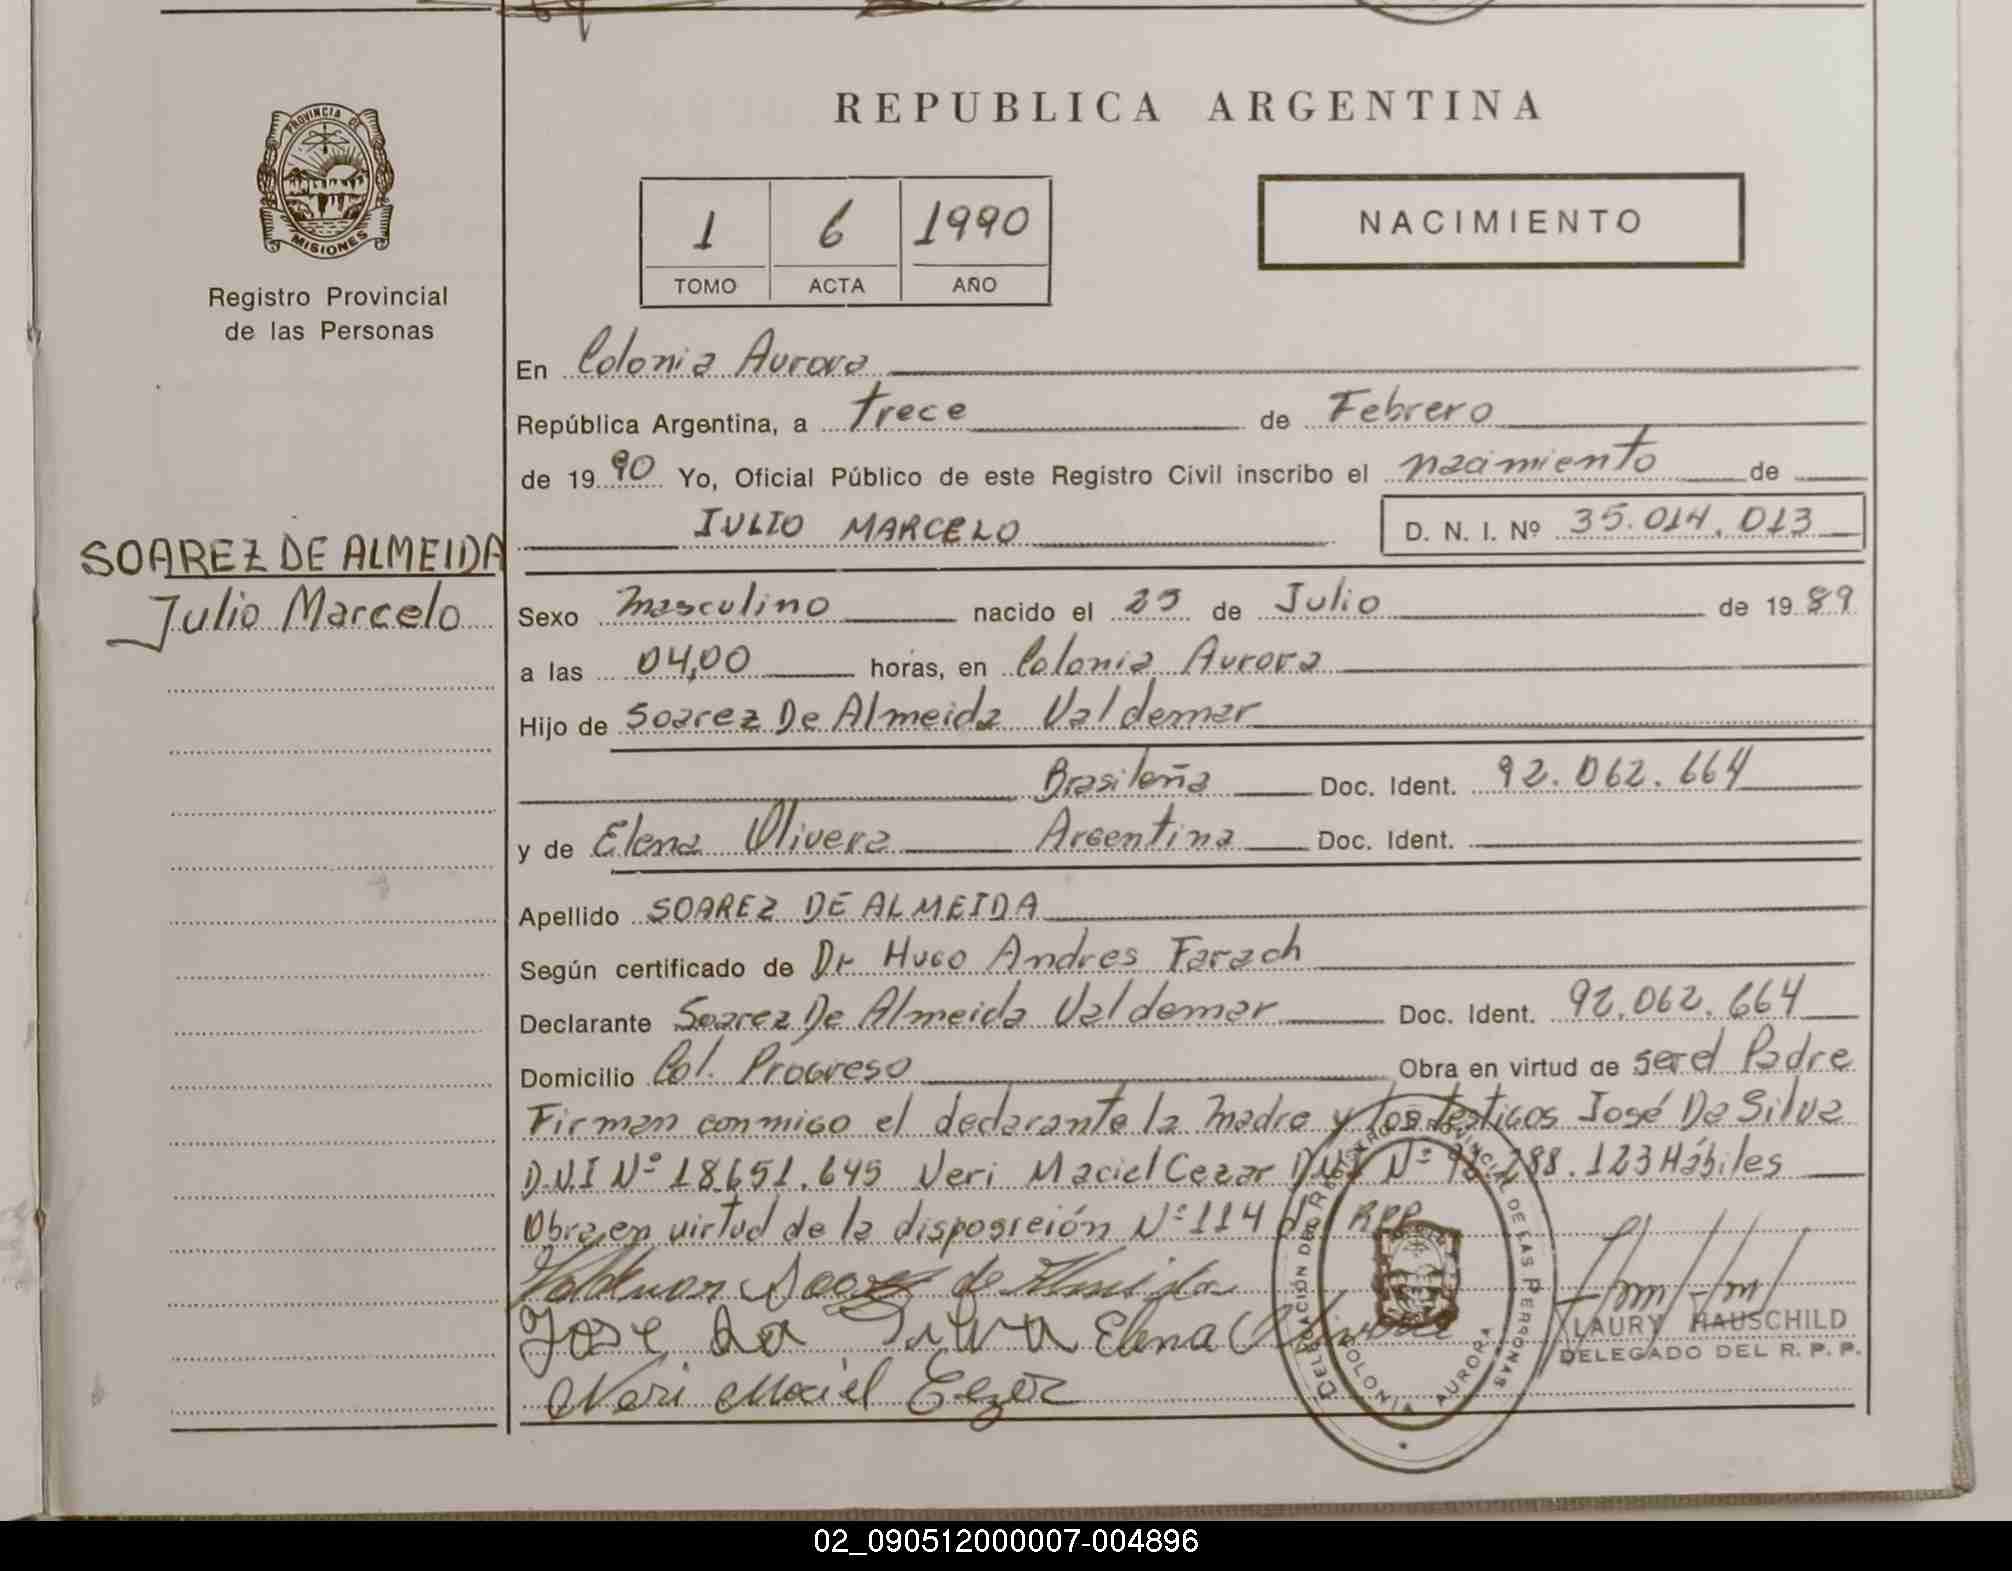 REPUBLICA ARGENTINA
PROVINCIA DE
MISIONES
Registro Provincial
de las Personas
1 6 1990
TOMO ACTA AÑO
NACIMIENTO
En Colonia Aurora
República Argentina, a trece de Febrero
de 1990 Yo, Oficial Público de este Registro Civil inscribo el nacimiento de
JULIO MARCELO D. N. I. Nº 35.014.013
SOAREZ DE ALMEIDA
Julio Marcelo
Sexo Masculino nacido el 25 de Julio de 1989
a las 04,00 horas, en Colonia Aurora
Hijo de Soarez De Almeida Valdemar
Brasileña Doc. Ident. 92.062.664
y de Elena Olivera Argentina Doc. Ident.
Apellido SOAREZ DE ALMEIDA
Según certificado de Dr Hugo Andres Farach
Declarante Soarez De Almeida Valdemar Doc. Ident. 92.062.664
Domicilio Col. Progreso Obra en virtud de ser el Padre
Firman conmigo el declarante la Madre y los testigos José Da Silva
D.N.I Nº 18.651.645 Neri Maciel Cezar DNI Nº 288.123 Hábiles
Obra en virtud de la disposición Nº 114 del RPP
Valdemar Soarez de Almeida
Jose da Silva Elena Olivera
Neri Maciel Cezar
DELEGACIÓN DEL REGISTRO PROVINCIAL DE LAS PERSONAS
COLONIA AURORA
LAURY HAUSCHILD
DELEGADO DEL R. P. P.
02_090512000007-004896